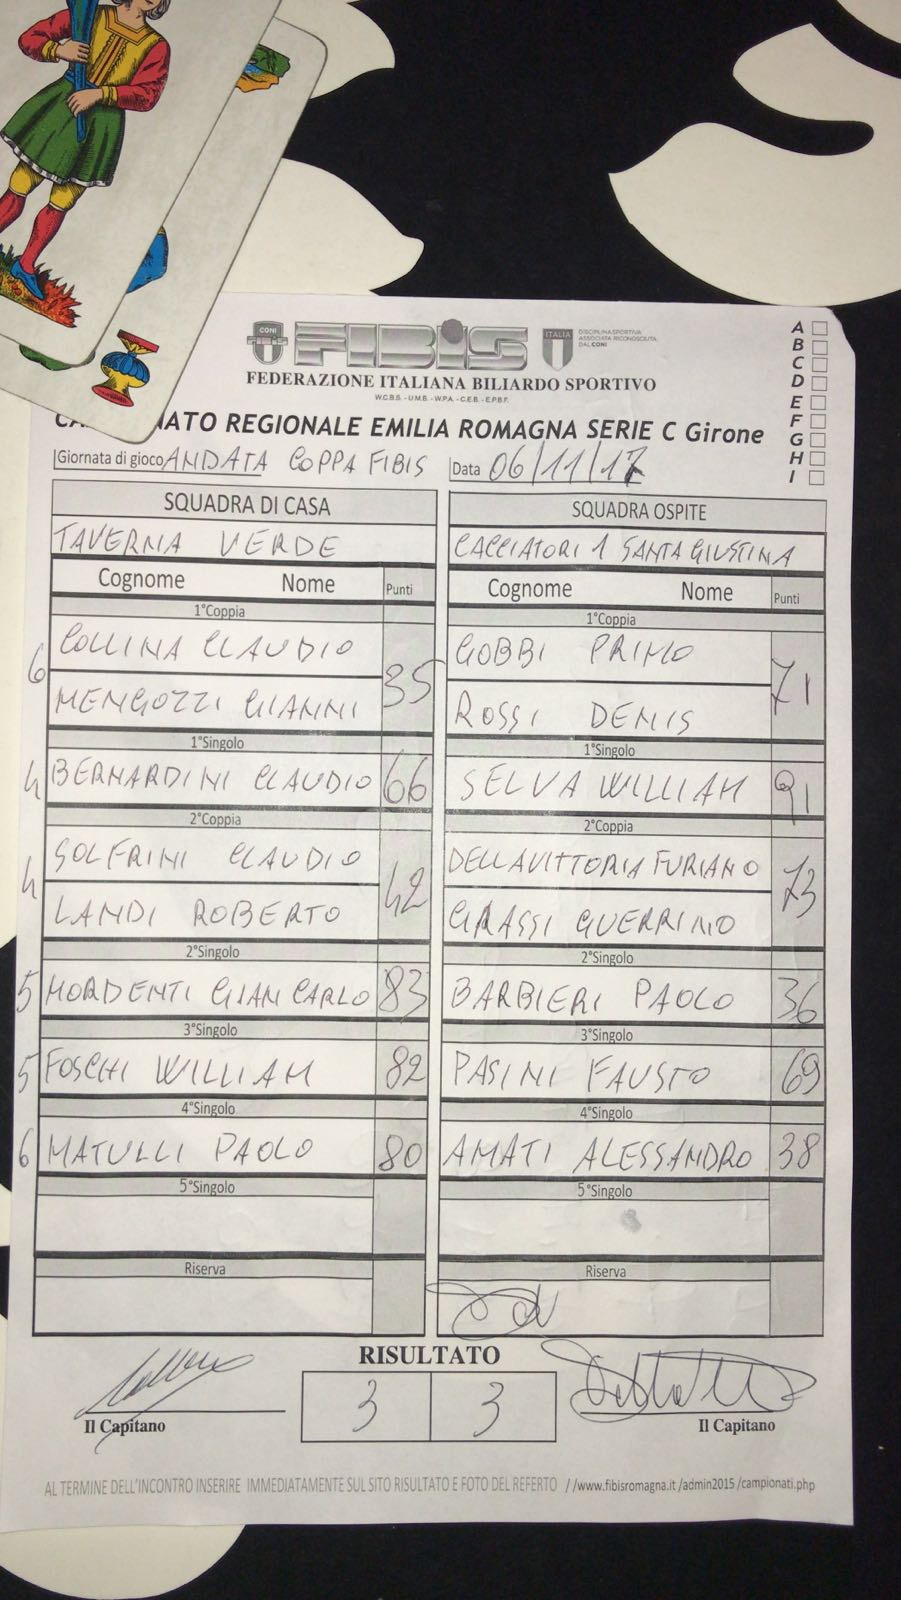 CONI
FIBIS
ITALIA
DISCIPLINA SPORTIVA
ASSOCIATA RICONOSCIUTA
DAL CONI
FEDERAZIONE ITALIANA BILIARDO SPORTIVO
W.C.B.S. - U.M.B. - W.P.A. - C.E.B. - E.P.B.F.
NATO REGIONALE EMILIA ROMAGNA SERIE C Girone
A
B
C
D
E
F
G
H
I
Giornata di gioco ANDATA COPPA FIBIS Data 06/11/17
SQUADRA DI CASA SQUADRA OSPITE
TAVERNA VERDE CACCIATORI 1 SANTAGIUSTINA
Cognome Nome Punti Cognome Nome Punti
1°Coppia 1°Coppia
6 COLLINA CLAUDIO 35 GOBBI PRIMO 71
MENGOZZI GIANNI ROSSI DENIS
1°Singolo 1°Singolo
4 BERNARDINI CLAUDIO 66 SELVA WILLIAM 91
2°Coppia 2°Coppia
4 SOLFRINI CLAUDIO 42 DELLAVITTORIA FURIANO 73
LANDI ROBERTO GRASSI GUERRINO
2°Singolo 2°Singolo
5 MORDENTI GIANCARLO 83 BARBIERI PAOLO 36
3°Singolo 3°Singolo
5 FOSCHI WILLIAM 82 PASINI FAUSTO 69
4°Singolo 4°Singolo
6 MATULLI PAOLO 80 AMATI ALESSANDRO 38
5°Singolo 5°Singolo
Riserva Riserva
RISULTATO
3 3
Il Capitano Il Capitano
AL TERMINE DELL'INCONTRO INSERIRE IMMEDIATAMENTE SUL SITO RISULTATO E FOTO DEL REFERTO //www.fibisromagna.it /admin2015 /campionati.php